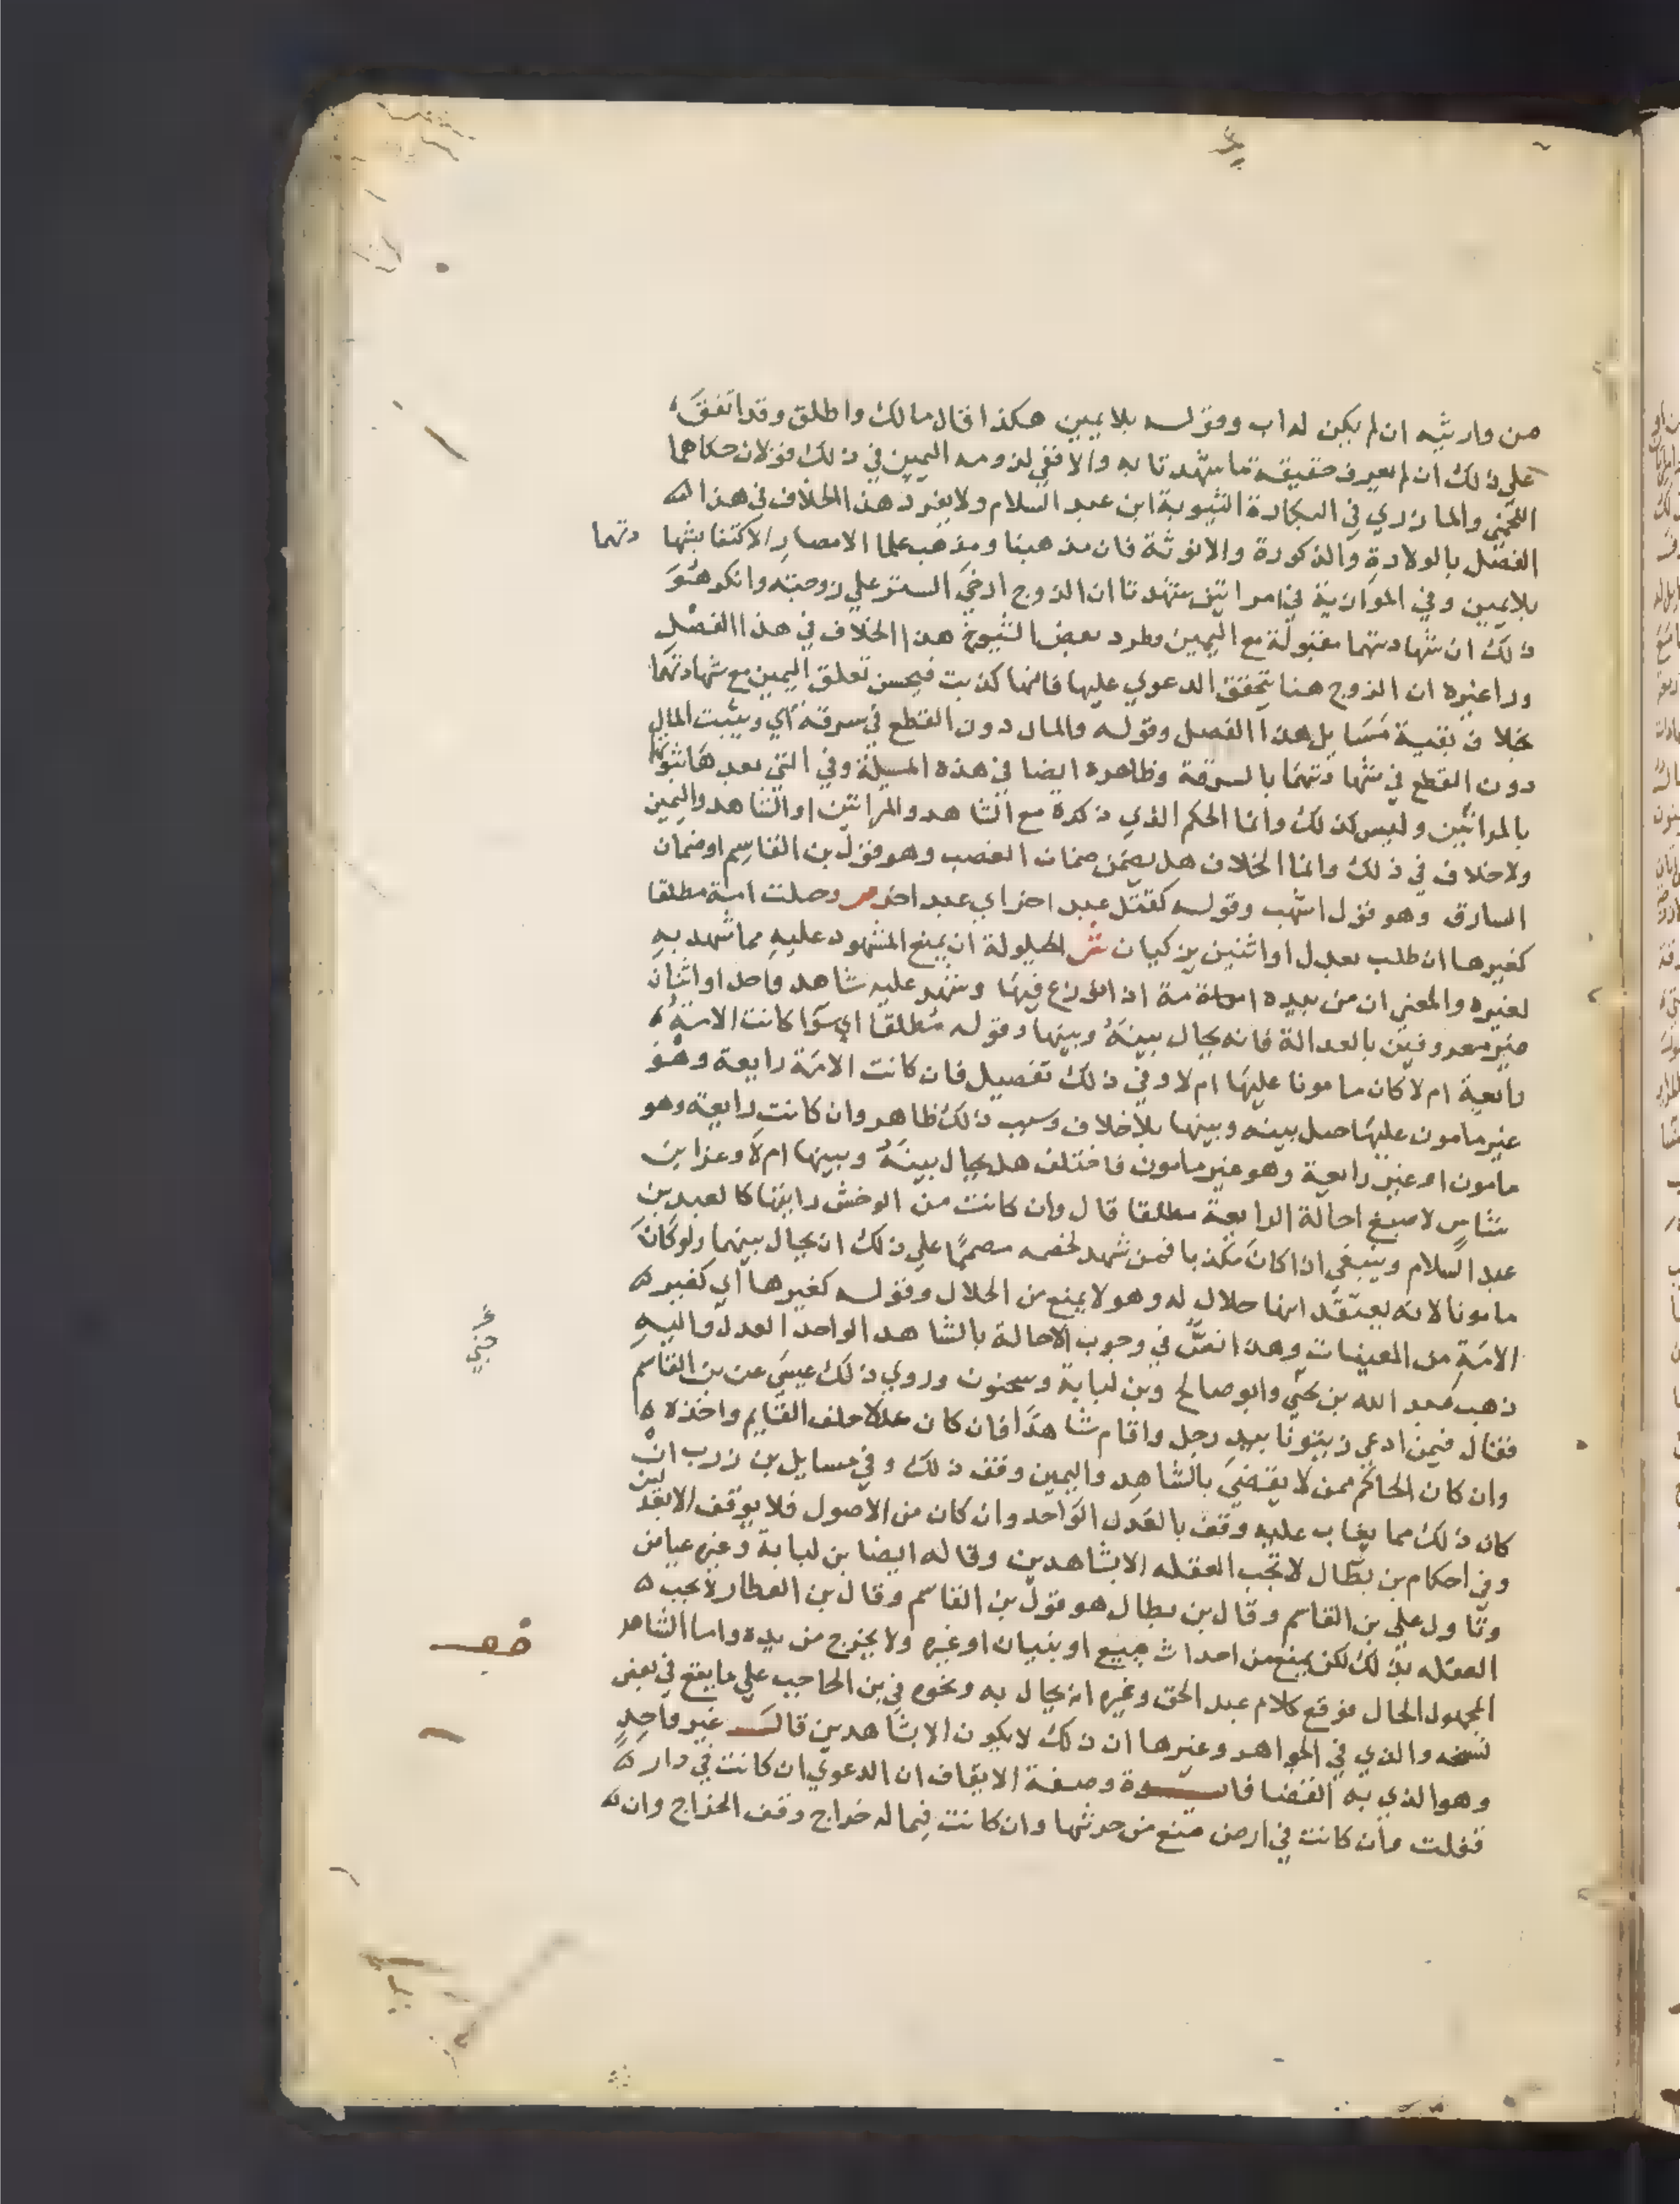 من وارثيه ان لم يكن له اب وقولـه بلا يمين هكذا قال مالك واطلق وقد اتفق
على ذلك ان لم يعرف حقيقة ما شهدتا به والا ففي لزومه اليمين في ذلك قولان حكاهما
اللخمي والمازري في البكارة الثيوبة ابن عبد السلام ولا يفرد هذا الخلاف في هذا
الفصل بالولادة والذكورة والانوثة فان مذهبنا ومذهب علما الامصار الاكتفا بشها
دتهما
بلا يمين وفي الموازية في امراتين شهدتا ان الزوج ارخى الستر على زوجته وانكر هو
ذلك ان شهادتهما مقبولة مع اليمين وطرد بعض الشيوخ هذا الخلاف في هذا الفصل
وراعيره ان الزوج هنا يتحقق الدعوي عليها فانها كذبت فيحسن تعلق اليمين مع شهادتهما
بخلاف بقية مسايل هذا الفصل وقولـه والمال دون القطع في سرقة أي ويثبت المال
دون القطع في شهادتهما بالسرقة وظاهره ايضا في هذه المسيلة وفي التي بعدها ثبوتها
بالمراتين وليس كذلك وانما الحكم الذي ذكره مع الشاهد والمراتين او الشاهد واليمين
ولا خلاف في ذلك وانما الخلاف هل يضمن ضمان الغصب وهو قول بن القاسم او ضمان
السارق وهو قول اشهب وقولـه كقتل عبد اخر اي عبد اخر ص وحيلت امة مطلقا
كغيرها ان طلب بعدل او اثنين يزكيان ش الحيلولة ان يمنع المشهود عليه مما شهد به
لغيره والمعنى ان من بيده امة اذا نوزع فيها وشهد عليه شاهد واحد او اثنان
غير معروفين بالعدالة فانه يحال بينه وبينها وقوله مطلقا اي سوا كانت الامة
رايعة ام لا كان مامونا عليها ام لا وفي ذلك تفصيل فان كانت الامة رايعة وهو
غير مامون عليها حيل بينه وبينها بلا خلاف وسبب ذلك ظاهر وان كانت رايعة وهو
مامون او غير رايعة وهو غير مامون فاختلف هل يحال بينه وبينها ام لا وعزا بن
شاس لاصبغ احالة الرايعة مطلقا قال وان كانت من الوخش رايتها كالعبد بن
عبد السلام وينبغي اذا كان مكذبا فمن شهد لخصمه مصمما على ذلك ان يحال بينهما ولو كان
مامونا لانه يعتقد انها حلال له وهو لا يمنع من الحلال وقولـه كغيرها أي كغير
الامة من المعينات وهذا نص في وجوب الاحالة بالشاهد الواحد العدل واليه
ذهب عبيد الله بن يحيى وابو صالح وبن لبابة وسحنون وروي ذلك عيسى عن بن القاسم
فقال فيمن ادعى زيتونا بيد رجل واقام شاهدا فان كان عدلا حلف القايم واخذه
وان كان الحاكم ممن لا يقضي بالشاهد واليمين وقف ذلك وفي مسايل بن زرب ان
كان ذلك مما يغاب عليه وقف بالعدل الواحد وان كان من الاصول فلا يوقف الا بعدلين
وفي احكام بن بطال لا تجب العقله الا بشاهدين وقاله ايضا بن لبابة وغيره عياض
وتاول على بن القاسم وقال بن بطال هو قول بن القاسم وقال بن العطار لا يجب
العقله بذلك لكن يمنع من احداث جبيع او بنيان او غيره ولا يخرج من يده واما الشاهد
المجهول الحال فوقع كلام عبد الحق وغيره انه يحال به ونحوه في بن الحاجب على ما يقع في بعض
نسخه والذي في الجواهر وغيرها ان ذلك لا يكون الا بشاهدين قالـ غير واحد
وهو الذي به القضا وصفة الايقاف ان الدعوي ان كانت في دار
قفلت وان كانت في ارض منع من حرثها وان كانت فيما له خراج وقف الخراج وان